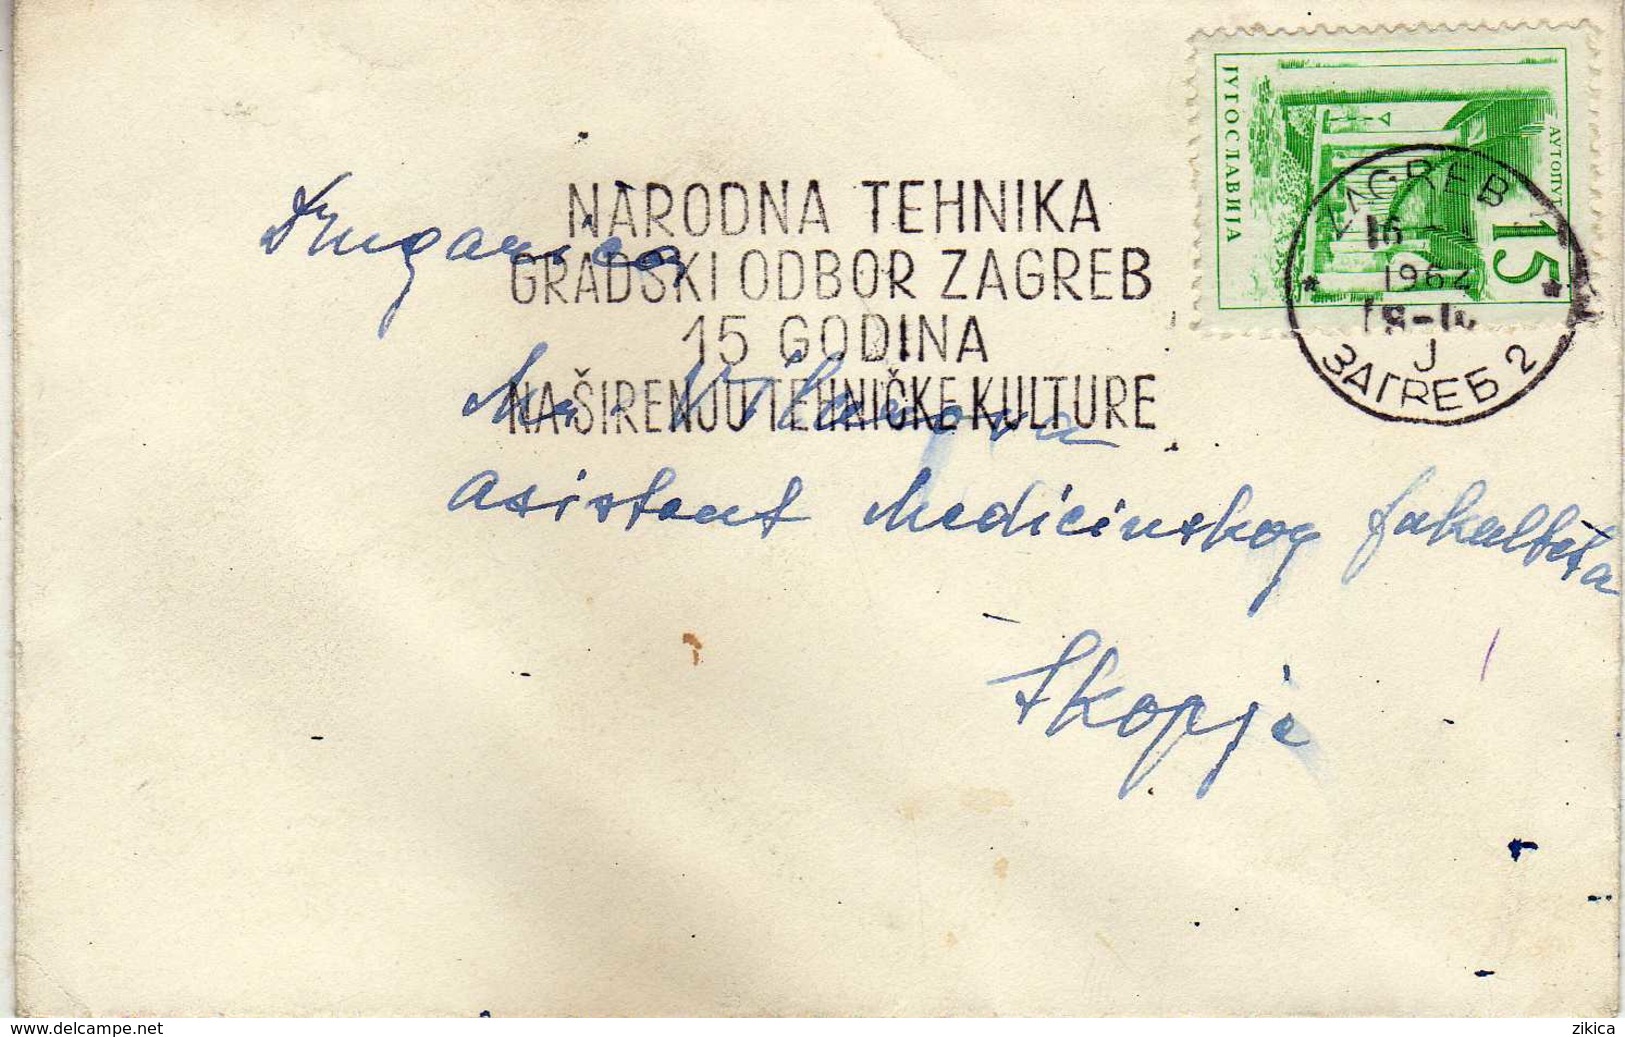 NARODNA TEHNIKA
GRADSKI ODBOR ZAGREB
15 GODINA
NA ŠIRENJU TEHNIČKE KULTURE
ЈУГОСЛАВИЈА
15
ZAGREB
16
1962
J
ЗАГРЕБ 2
Drugarica
asistent Medicinskog fakulteta
Skopje
www.delcampe.net
zikica